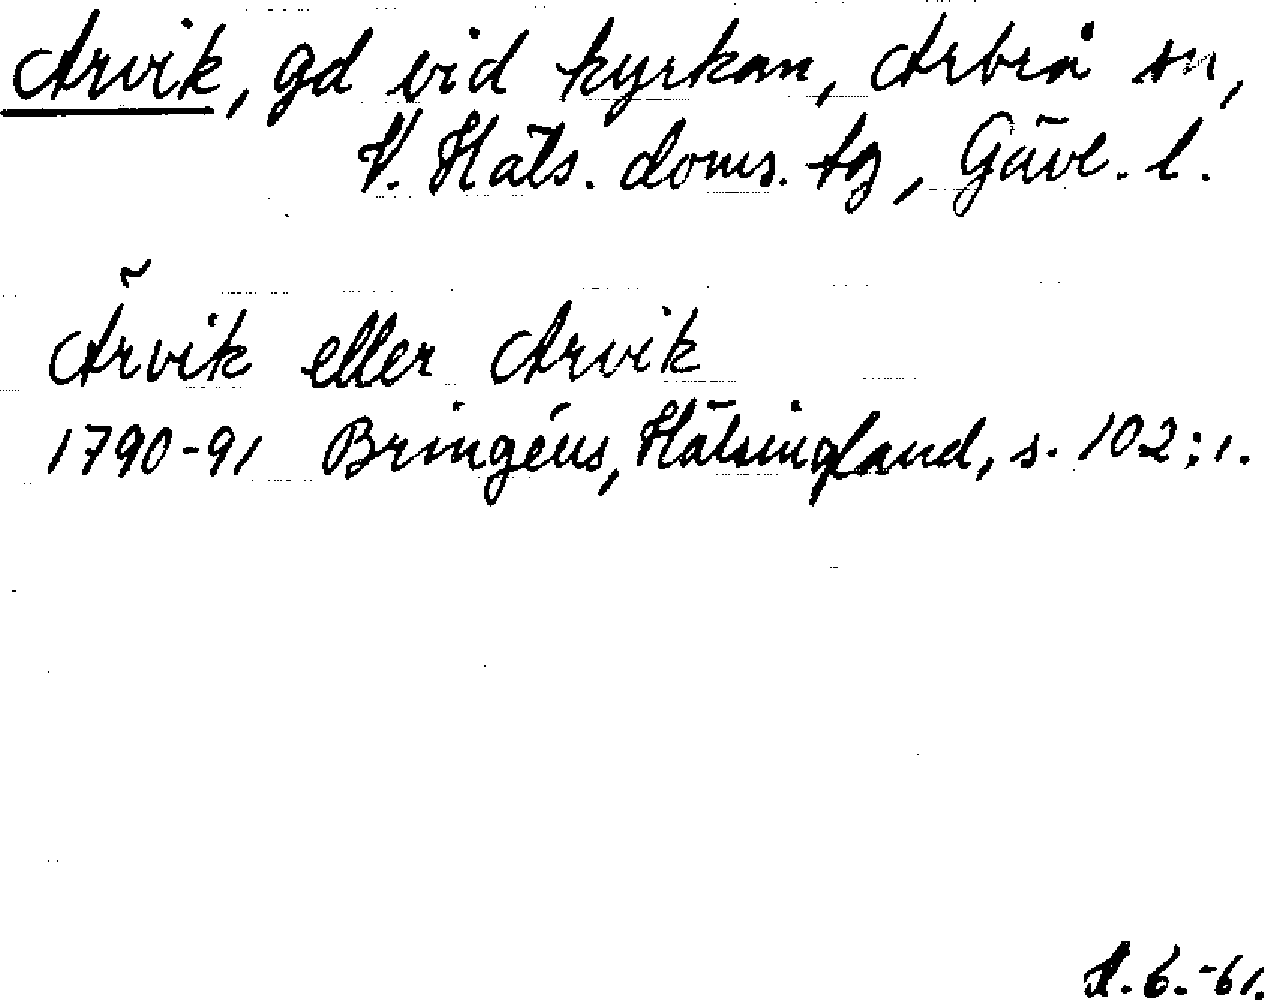 Arvik, gd vid kyrkan, Arbrå sn,
V. Häls. doms. tg, Gävl. l.
Ärvik eller Arvik
1790-91 Bringéus, Hälsingland, s. 102:1.
H.B.-61.